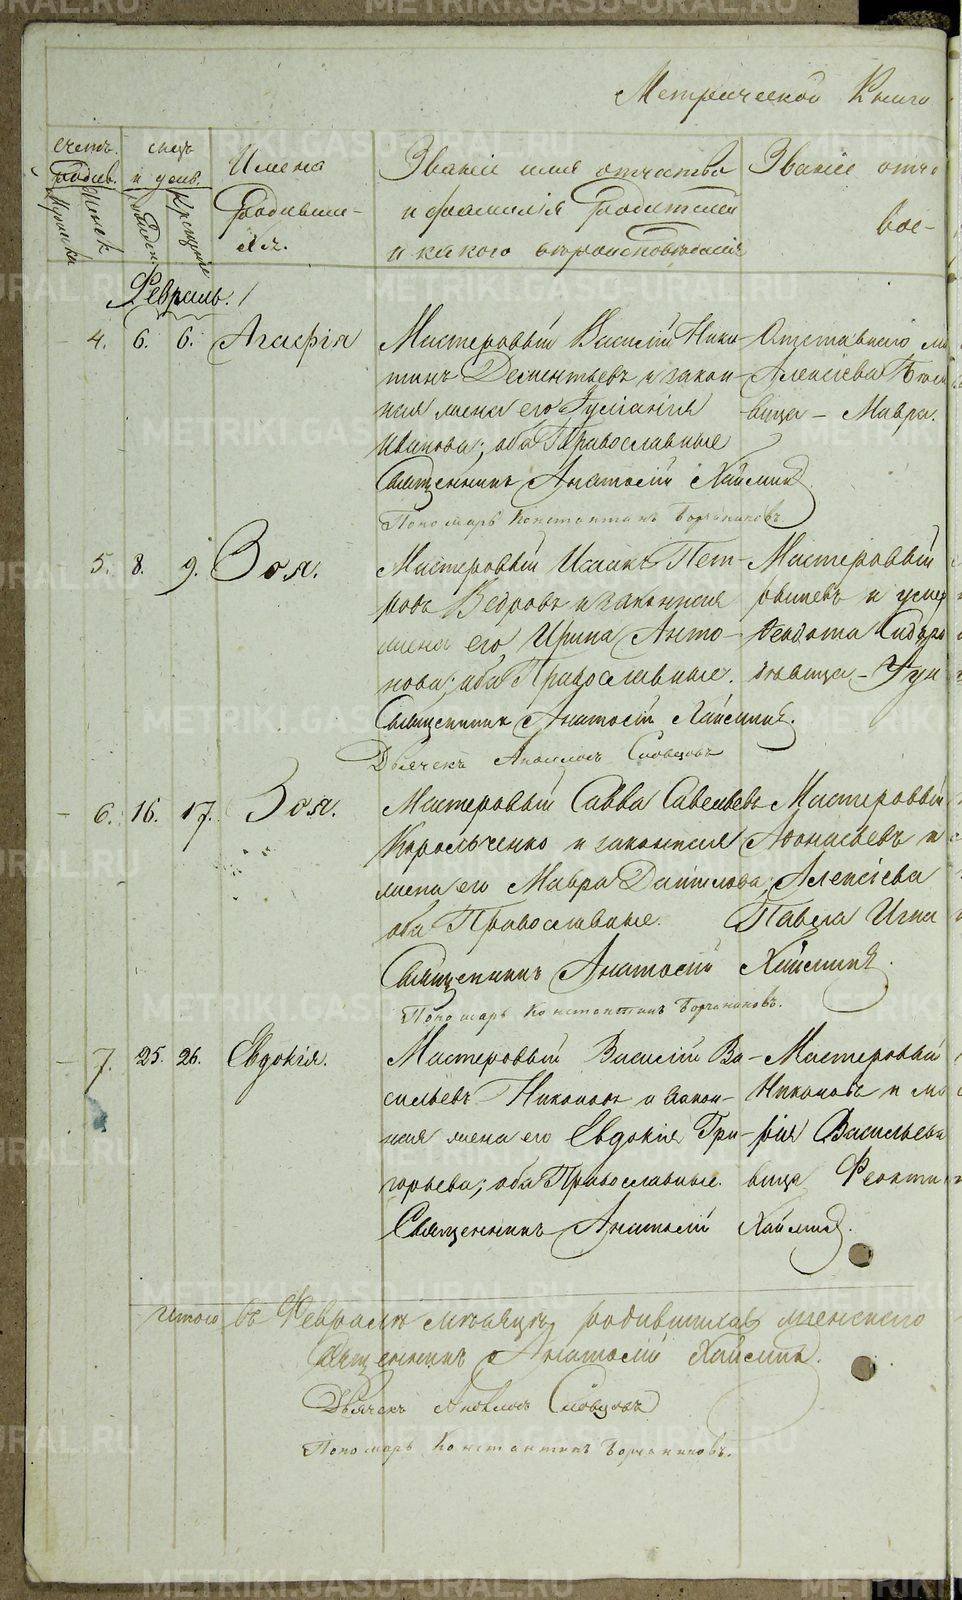 Метрической Книги
счетъ родив.
Мужска
Женск
мсцъ и день.
рожден.
Крещение
Имена Родивши-хся.
Званіе имя отчество и фамилія Родителей и какого вѣроисповѣданія
Званіе отче
вос-
Февраль.
4. 6. 6. Агафія
Мастеровый Василій Ники-
тинъ Дементьевъ и закон-
ная жена его Гликерія
Иванова; оба Православные
Священникъ Анатолій Хаймин
Пономарь Константинъ Борчаниновъ
Отставнаго ма
Алексіева
вица - Мавра.
5. 8. 9. Зоя.
Мастеровый Исаакъ Пет-
ровъ Ведровъ и законная
жена его Ирина Анто-
нова; оба Православные.
Священникъ Анатолій Хаймин.
Дьячекъ Аполлосъ Словцовъ
Мастеровый
и умер
Феодота Сидоро
вица -
6. 16. 17. Зоя.
Мастеровый Савва Савельевъ
Корольченко и законная
жена его Мавра Данилова;
оба Православные.
Священникъ Анатолій Хаймин.
Пономарь Константинъ Борчаниновъ.
Мастеровый
Афонасьевъ и
Алексіева
Павла Игна
7. 25. 26. Евдокія.
Мастеровый Василій Ва-
сильевъ Никоновъ и закон-
ная жена его Евдокія Гри-
горьева; оба Православные.
Священникъ Анатолій Хаймин.
Мастеровый
Никоновъ и ма
рія Васильева
вица Феокти
Итого въ Февралѣ мѣсяцѣ родившихся женскаго
Священникъ Анатолій Хаймин.
Дьячекъ Аполлосъ Словцовъ
Пономарь Константинъ Борчаниновъ.
METRIKI.GASO-URAL.RU